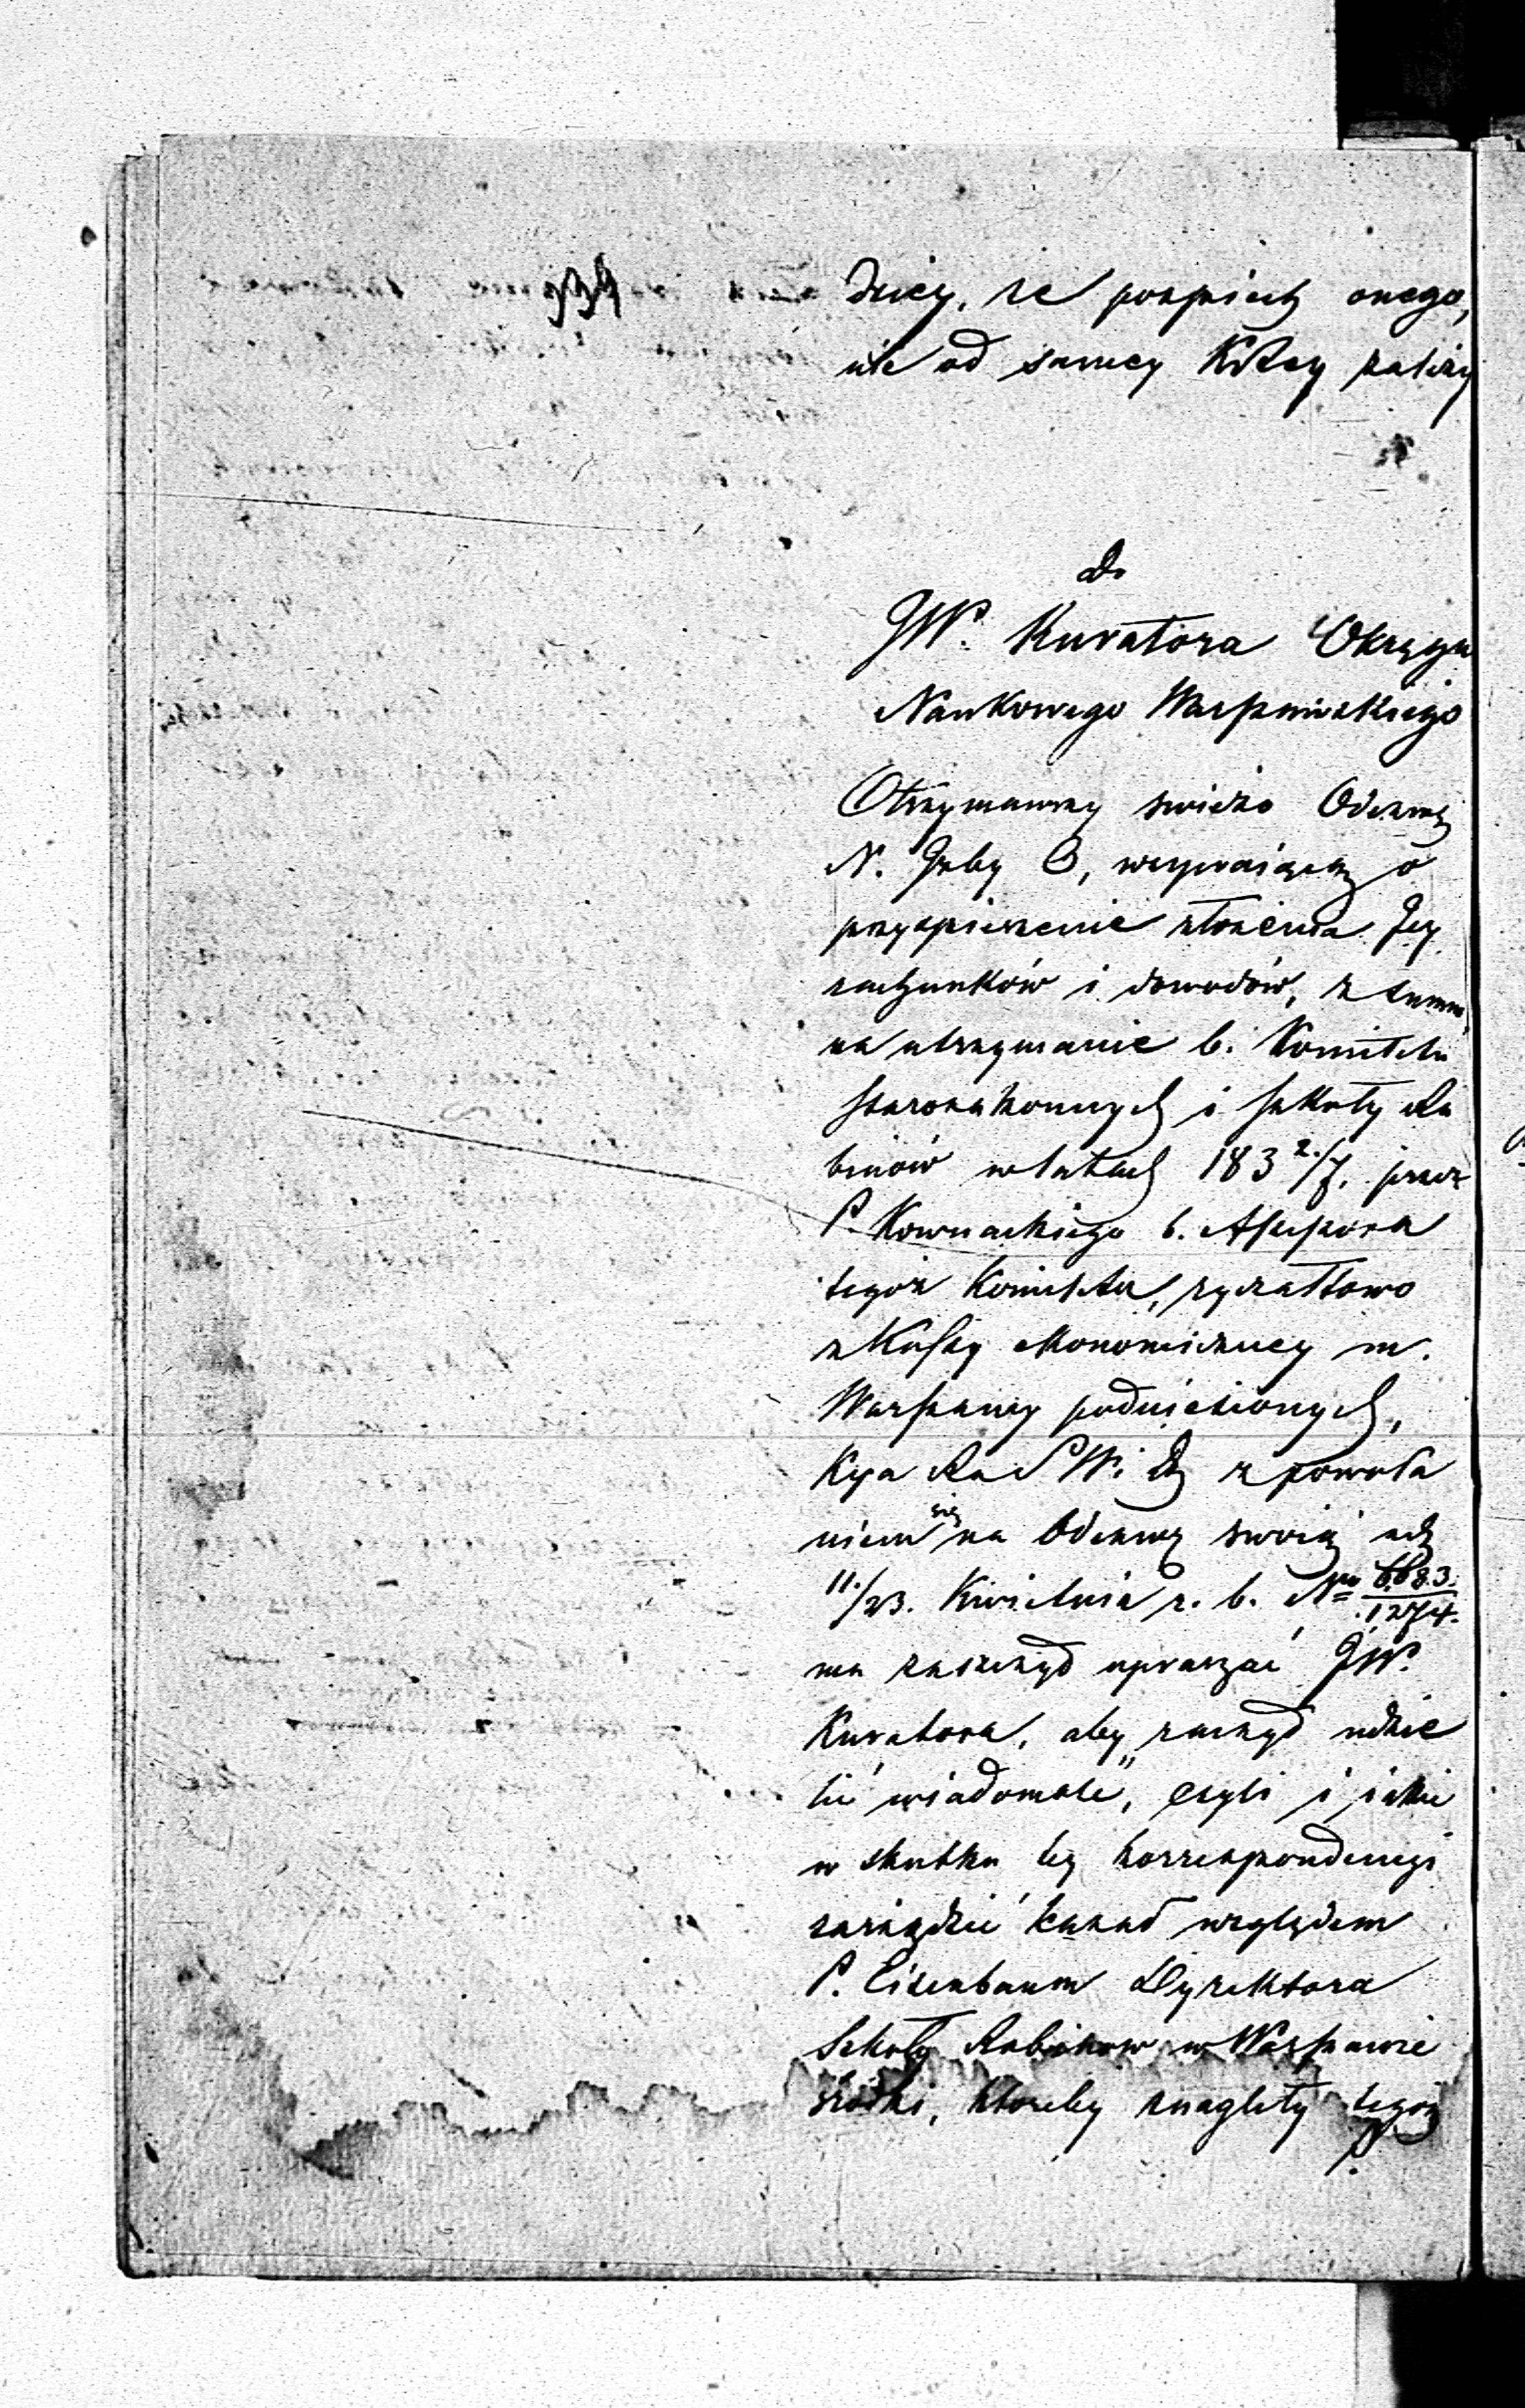 934
dziey, że pośpiech onego,
nie od samey KRzey zależy
Do
JW. Kuratora Okręgu
Naukowego Warszawskiego
Otrzymawszy swieżo Odezwę
N. Izby O, wzywaiącą o
przyspieszenie złożenia Jey
rachunków i dowodów, z summ
na utrzymanie b. Komitetu
Starozakonnych i Szkoły Ra
binów w latach 183 2/7. przez
P. Kownackiego b. Assessora
tegoż Komitetu, ryczałtowo
z Kassy ekonomiczney m.
Warszawy podniesionych,
Kya Rzd SW. D z powoła
niem się na Odezwę swoią z d
11./23. Kwietnia r. b. Nro 6683./1274.
ma zaszczyt upraszać JW.
Kuratora, aby raczył udzie
lić wiadomość, czyli i iakie
w skutku tey korrespondencyi
zarządzić kazał względem
P. Eisenbaum Dyrektora
Szkoły Rabinow w Warszawie
środki, któreby znagliły tegoż
P.